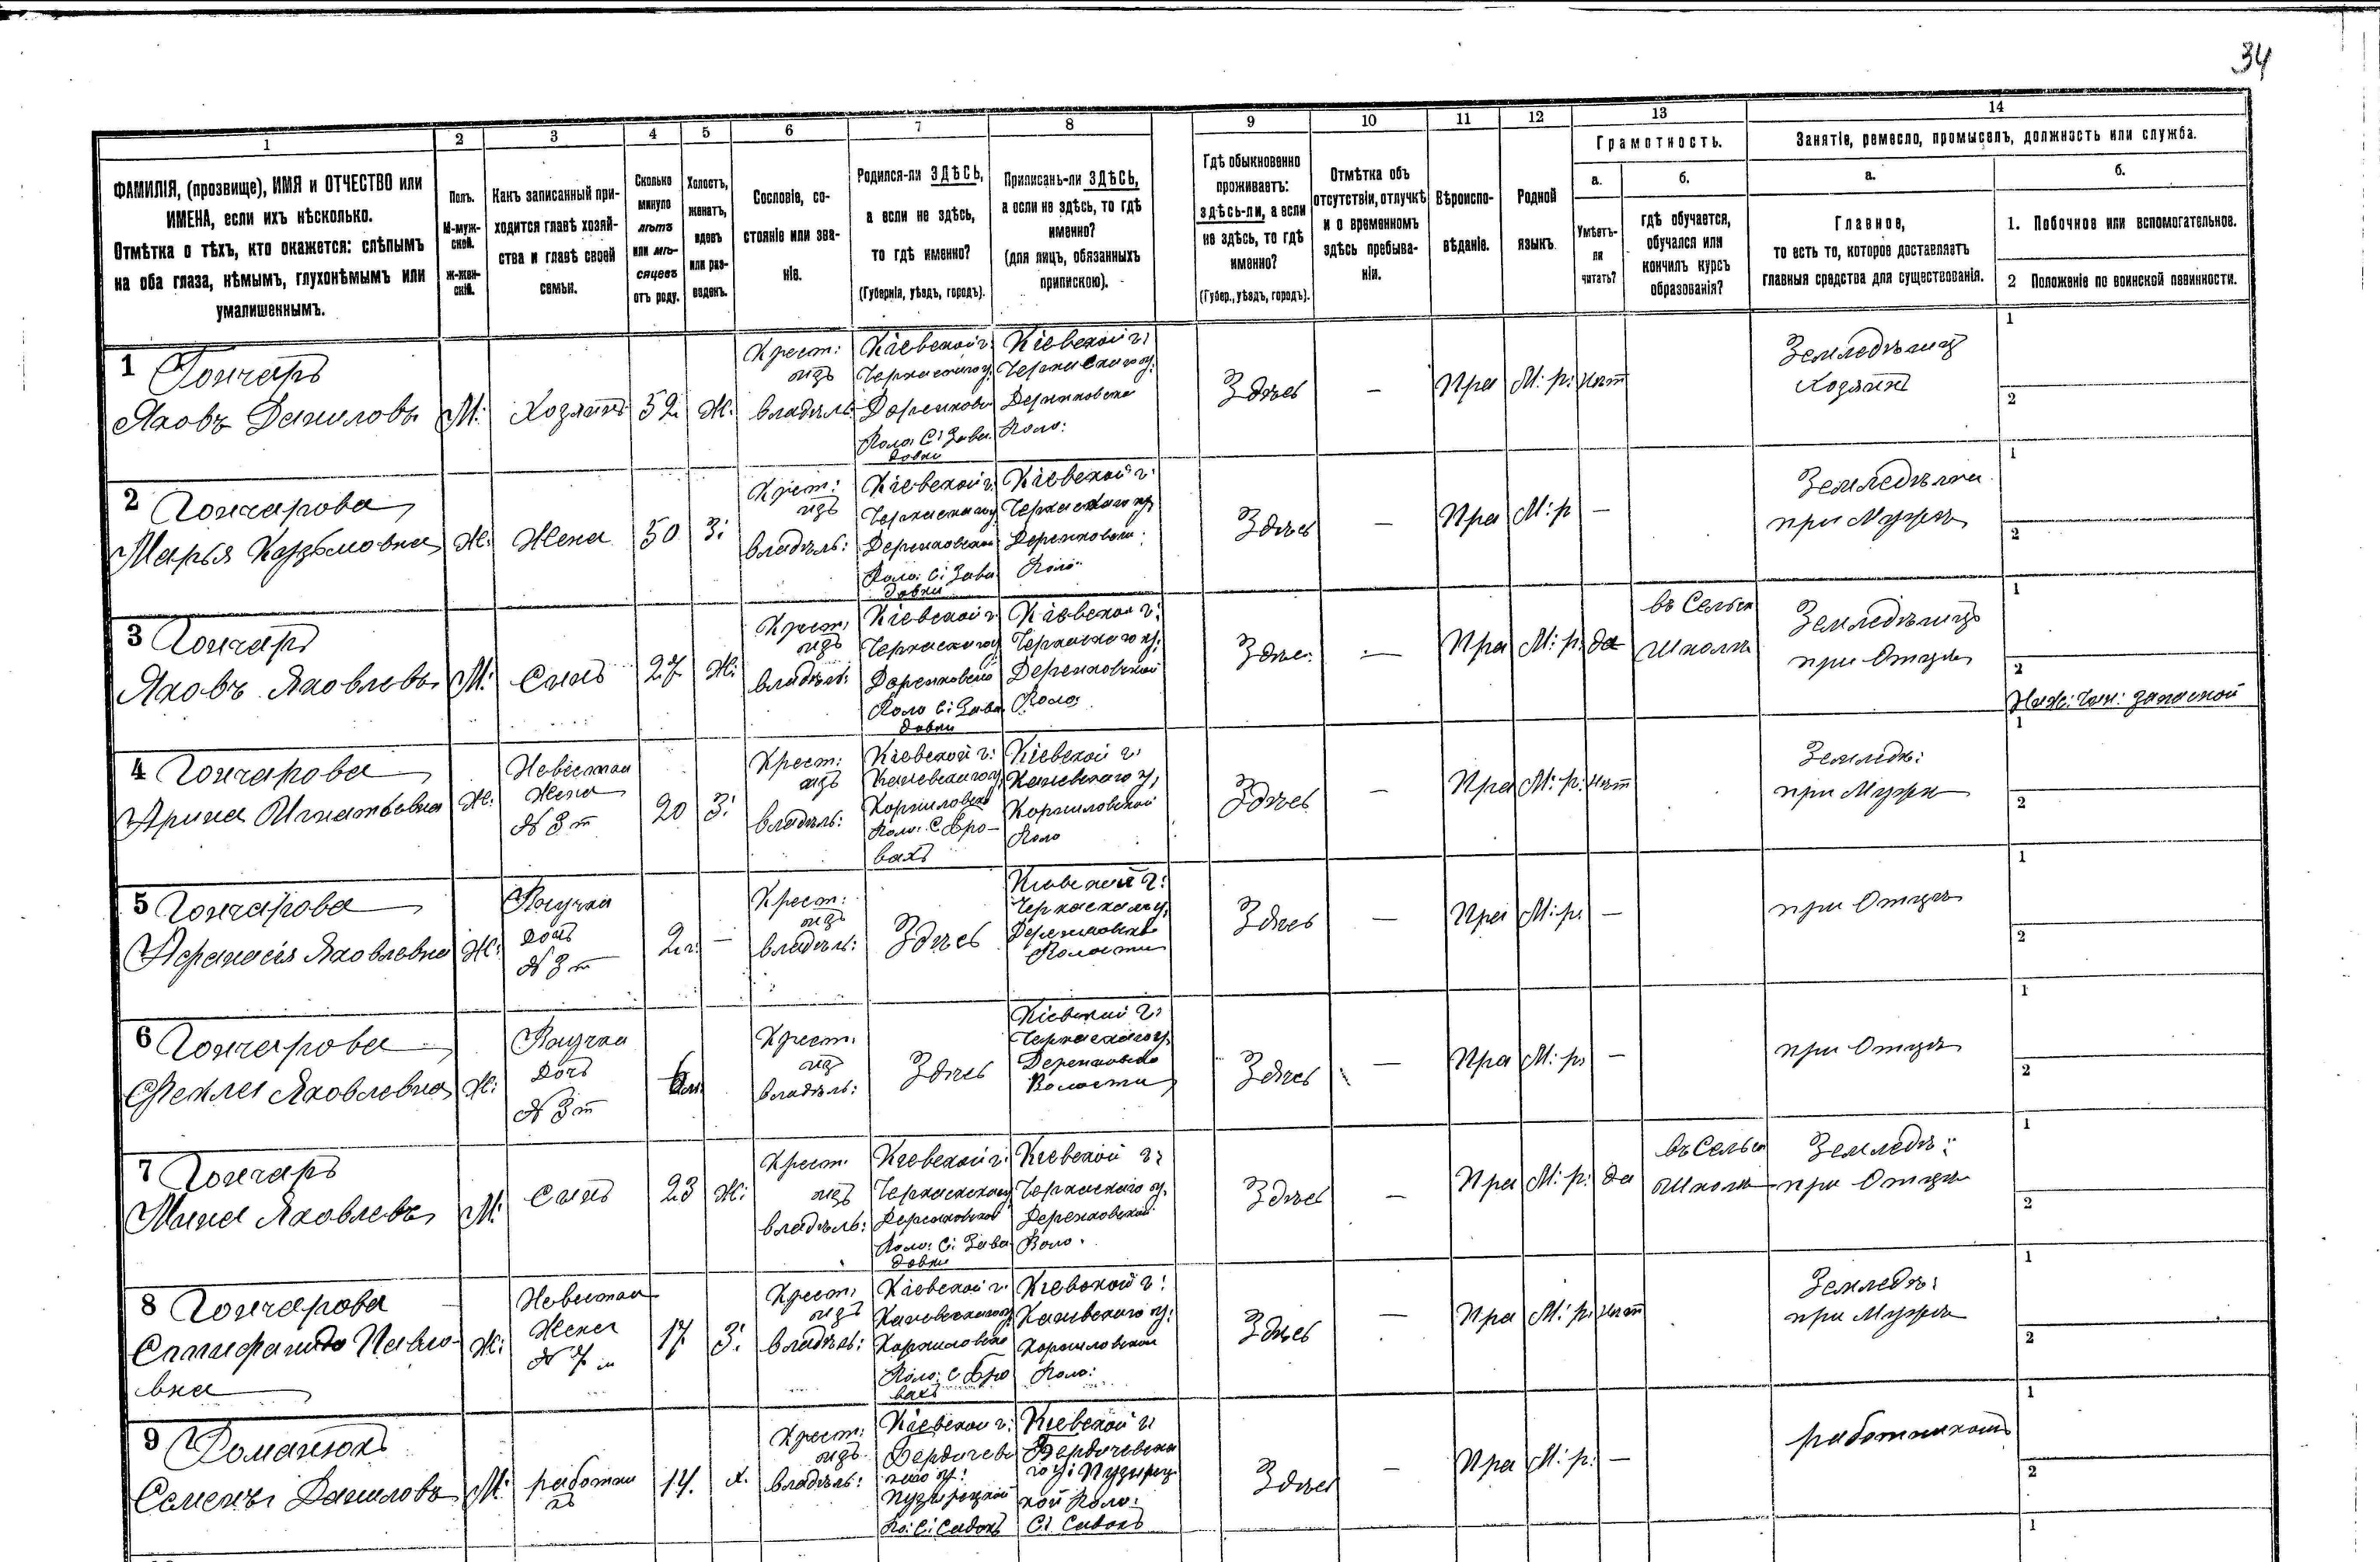 34
1 2 3 4 5 6 7 8 9 10 11 12 13 14
ФАМИЛІЯ, (прозвище), ИМЯ и ОТЧЕСТВО или
ИМЕНА, если ихъ нѣсколько.
Отмѣтка о тѣхъ, кто окажется: слѣпымъ
на оба глаза, нѣмымъ, глухонѣмымъ или
умалишеннымъ.
Полъ.
М-муж-
ской.
Ж-жен-
скій.
Какъ записанный при-
ходится главѣ хозяй-
ства и главѣ своей
семьи.
Сколько
минуло
лѣтъ
или мѣ-
сяцевъ
отъ роду.
Холостъ,
женатъ,
вдовъ
или раз-
веденъ.
Сословіе, со-
стояніе или зва-
ніе.
Родился-ли ЗДѢСЬ,
а если не здѣсь,
то гдѣ именно?
(Губернія, уѣздъ, городъ).
Приписанъ-ли ЗДѢСЬ,
а если не здѣсь, то гдѣ
именно?
(для лицъ, обязанныхъ
припискою).
Гдѣ обыкновенно
проживаетъ:
здѣсь-ли, а если
не здѣсь, то гдѣ
именно?
(Губер., уѣздъ, городъ).
Отмѣтка объ
отсутствіи, отлучкѣ
и о временномъ
здѣсь пребыва-
ніи.
Вѣроиспо-
вѣданіе.
Родной
языкъ.
Грамотность.
а.
Умѣетъ-
ли
читать?
б.
гдѣ обучается,
обучался или
кончилъ курсъ
образованія?
Занятіе, ремесло, промыселъ, должность или служба.
а.
Главное,
то есть то, которое доставляетъ
главныя средства для существованія.
б.
1. Побочное или вспомогательное.
2 Положеніе по воинской повинности.
1 Гончаръ
Яковъ Даниловъ
М:
Хозяинъ
52
Ж:
Крест:
изъ
владѣль:
Кіевской г:
Черкаскаго у:
Деренковс
Воло: С: Зава
довки
Кіевской г:
Черкаскаго у:
Деренковско
Воло:
Здѣсь
—
Пра
М: р:
нѣт
Земледѣлец
Хозяинъ
1
2
2 Гончарова
Марья Кузьмовна
Ж:
Жена
50
З:
Крест:
изъ
владѣль:
Кіевской г:
Черкаскаго у
Деренковской
Воло: С: Зава
довки
Кіевской г:
Черкаскаго у:
Деренковской
Воло:
Здѣсь
—
Пра
М: р
—
Земледѣлка
при Мужѣ
1
2
3 Гончаръ
Яковъ Яковлевъ
М:
Сынъ
27
Ж:
Крест:
изъ
владѣль:
Кіевской г:
Черкаскаго у
Деренковско
Воло С: Зава
довки
Кіевской г:
Черкаскаго у:
Деренковской
Воло:
Здѣс:
—
Пра
М: р:
да
въ Сельск
Школѣ
Земледѣлецъ
при Отцѣ
1
2
Ниж: Чин: запасной
4 Гончарова
Арина Игнатьевна
Ж:
Невестка
Жена
№ 3 т
20
З:
Крест:
изъ
владѣль:
Кіевской г:
Каневскаго у:
Корниловско
Воло: С Бро-
вахъ
Кіевской г:
Каневскаго у:
Корниловской
Воло
Здѣсь
—
Пра
М: р:
нѣт
Земледѣ:
при Мужѣ
1
2
5 Гончарова
Афанасія Яковлевна
Ж:
Внучка
дочь
№ 3 т
2 г:
—
Крест:
изъ
владѣль:
Здѣсь
Кіевской г:
Черкаскаго у:
Деренковско
Волости
Здѣсь
—
Пра
М: р:
—
при Отцѣ
1
2
6 Гончарова
Фекла Яковлевна
Ж:
Внучка
Дочь
№ 3 т
Крест:
изъ
владѣль:
Здѣсь
Кіевской г:
Черкаскаго у:
Деренковско
Волости
Здѣсь
—
Пра
М: р:
—
при Отцѣ
1
2
7 Гончаръ
Мина Яковлевъ
М:
Сынъ
23
Ж:
Крест:
изъ
владѣль:
Кіевской г:
Черкаскаго у
Деренковской
Воло: С: Зава
довки
Кіевской г:
Черкаскаго у:
Деренковской
Воло:
Здѣсь
—
Пра
М: р:
да
въ Сельск
Школѣ
Земледѣ:
при Отцѣ
1
2
8 Гончарова
Павло-
вна
Ж:
Невестка
Жена
№ 7 м
17
З:
Крест:
изъ
владѣль:
Кіевской г:
Каневскаго у:
Корниловско
Воло: С Бро
вахъ
Кіевской г:
Каневскаго у:
Корниловской
Воло:
Здѣсь
—
Пра
М: р:
нѣт
Земледѣ:
при Мужѣ
1
2
9 Романюкъ
Семенъ Даниловъ
М:
работни
къ
14.
х.
Крест:
изъ
владѣль:
Кіевской г:
Бердичевс
каго у:
Пузырецкой
Во: С: Садокъ
Кіевской г:
Бердичевска
го у: Пузырец
кой Воло:
С: Садокъ
Здѣсь
—
Пра
М: р:
—
работникомъ
1
2
1